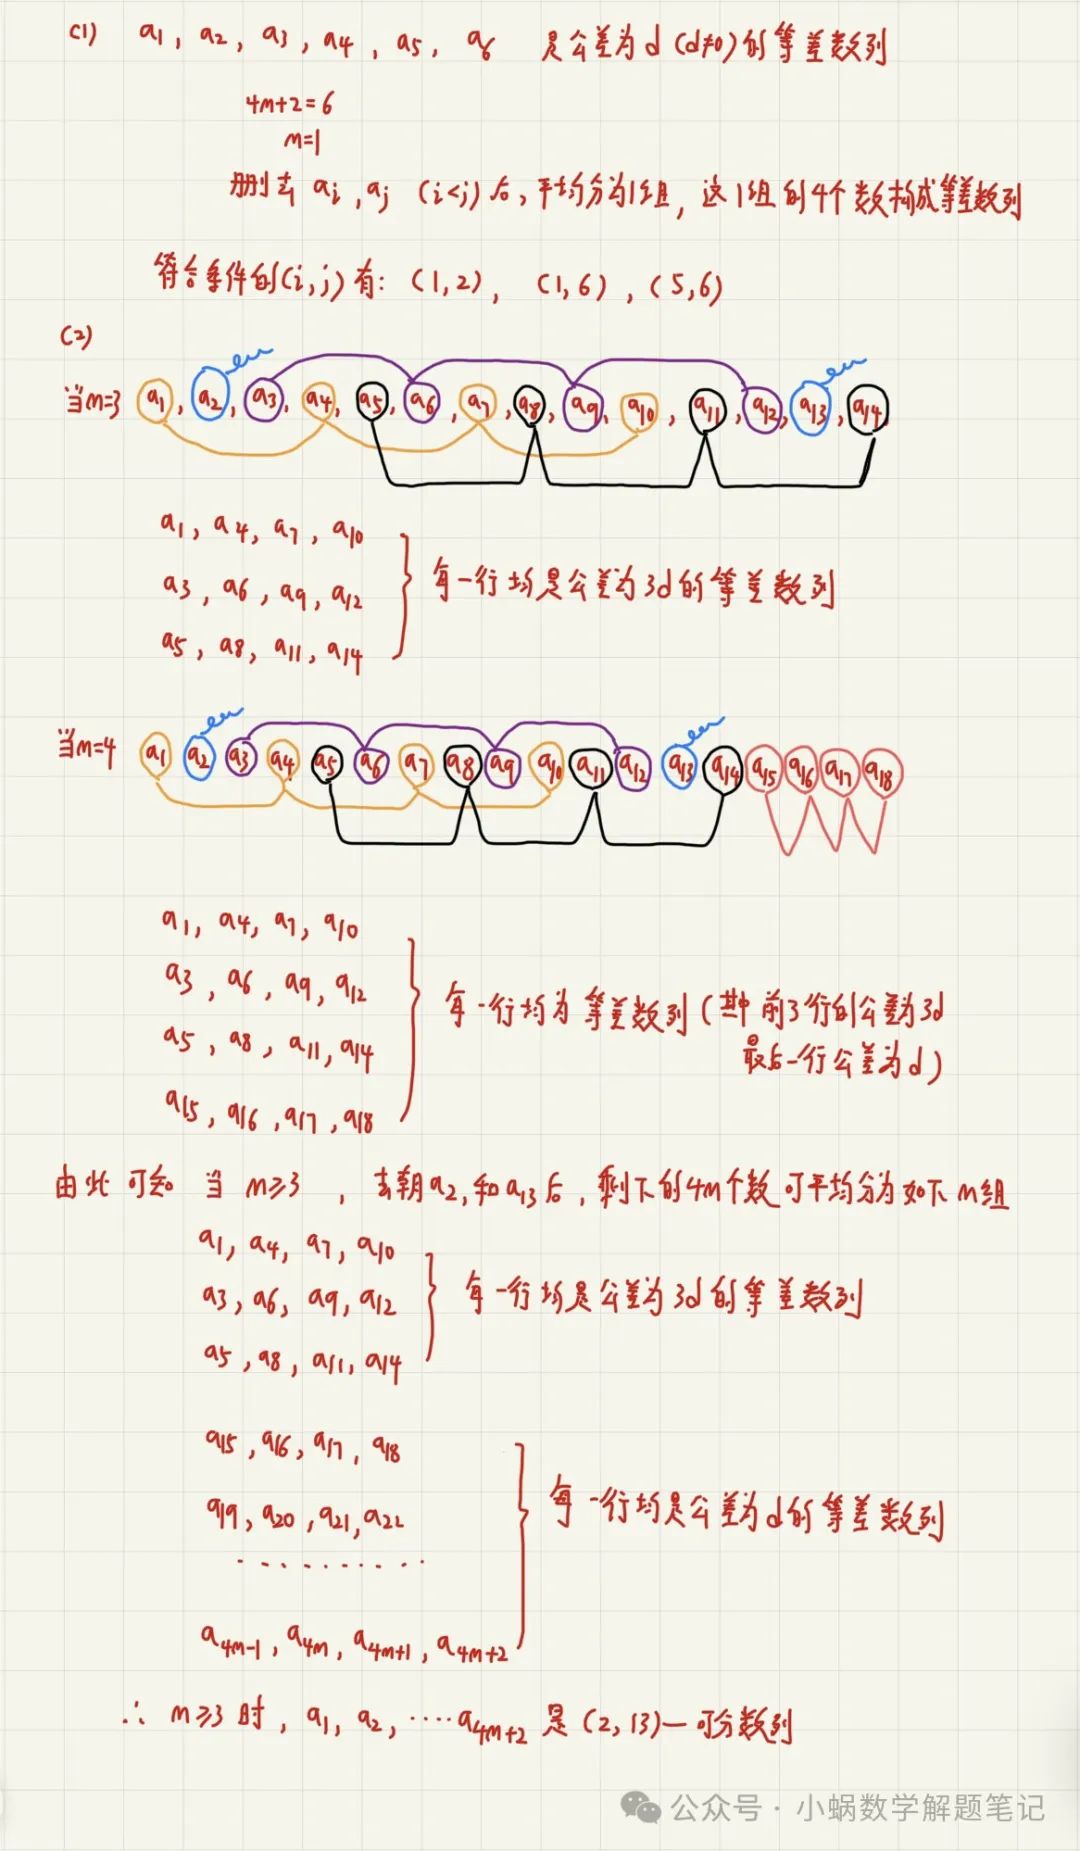 (1) a1, a2, a3, a4, a5, a6 是公差为d (d≠0)的等差数列
4m+2=6
m=1
删去 ai, aj (i<j)后,平均分为1组,这1组的4个数构成等差数列
符合条件的(i,j)有: (1,2), (1,6), (5,6)
(2)
当m=3 a1, a2, a3, a4, a5, a6, a7, a8, a9, a10, a11, a12, a13, a14
a1, a4, a7, a10
a3, a6, a9, a12
a5, a8, a11, a14
每一行均是公差为3d的等差数列
当m=4 a1 a2 a3 a4 a5 a6 a7 a8 a9 a10 a11 a12 a13 a14 a15 a16 a17 a18
a1, a4, a7, a10
a3, a6, a9, a12
a5, a8, a11, a14
a15, a16, a17, a18
每一行均为等差数列(其中前3行的公差为3d
最后一行公差为d)
由此可知 当m≥3, 去朝a2,和a13后,剩下的4m个数可平均分为如下m组
a1, a4, a7, a10
a3, a6, a9, a12
a5, a8, a11, a14
每一行均是公差为3d的等差数列
a15, a16, a17, a18
a19, a20, a21, a22
..........
a4m-1, a4m, a4m+1, a4m+2
每一行均是公差为d的等差数列
∴ m≥3时, a1, a2, ····a4m+2 是(2,13)一可分数列
公众号·小蜗数学解题笔记